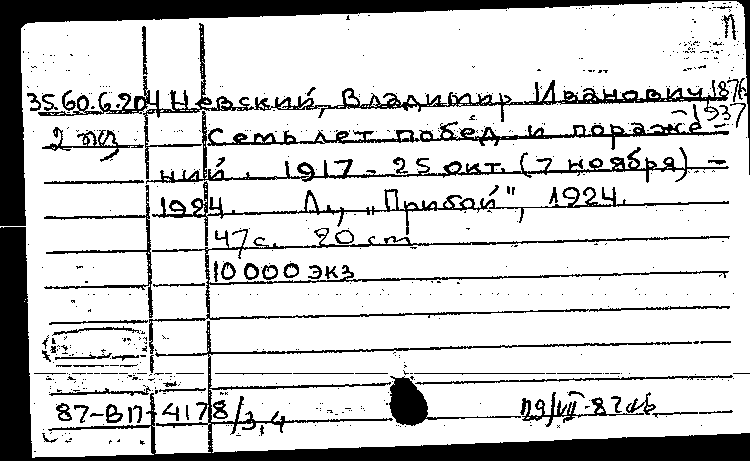 П
35.60.6.204 Невский, Владимир Иванович, 1876
1937
2 экз Семь лет побед и пораже-
ний. 1917 - 25 окт. (7 ноября) -
1924. Л., „Прибой", 1924.
47 с. 20 cm
10 000 экз
87-ВП-4178/3,4